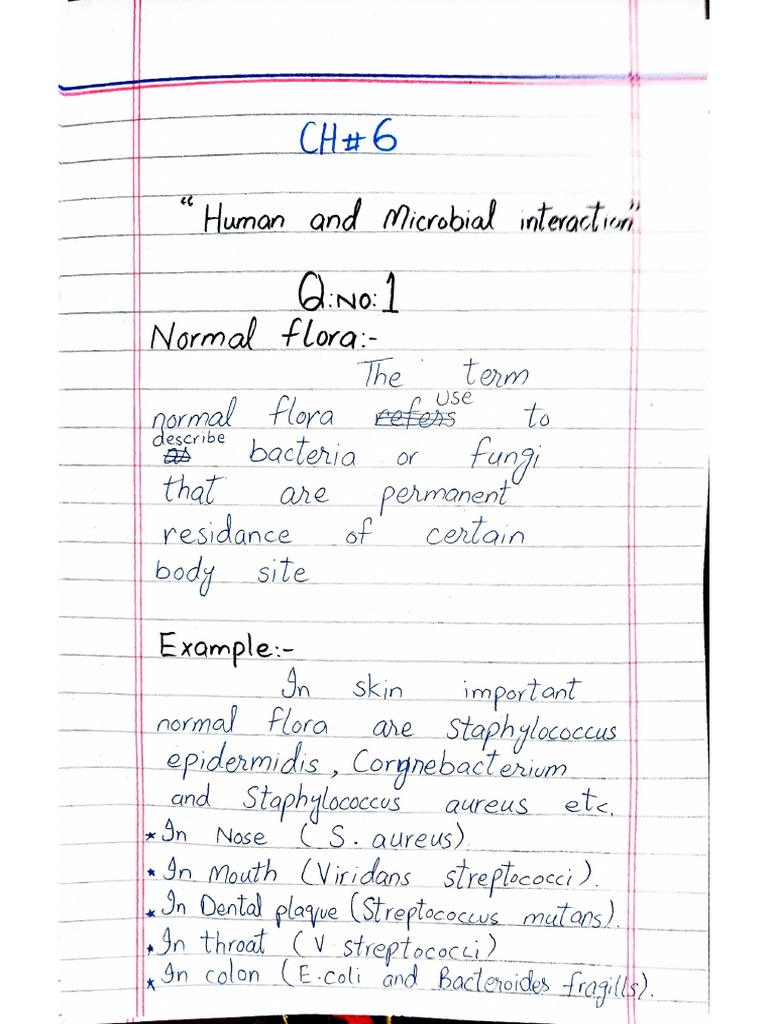 CH#6
"Human and Microbial interaction"
Q:NO:1
Normal flora:-
The term
normal flora refers use to
as describe bacteria or fungi
that are permanent
residance of certain
body site
Example:-
In skin important
normal flora are Staphylococcus
epidermidis, Corynebacterium
and Staphylococcus aureus etc.
* In Nose (S. aureus)
* In Mouth (Viridans streptococci).
* In Dental plaque (Streptococcus mutans).
* In throat (V streptococci)
* In colon (E.coli and Bacteroides fragills).